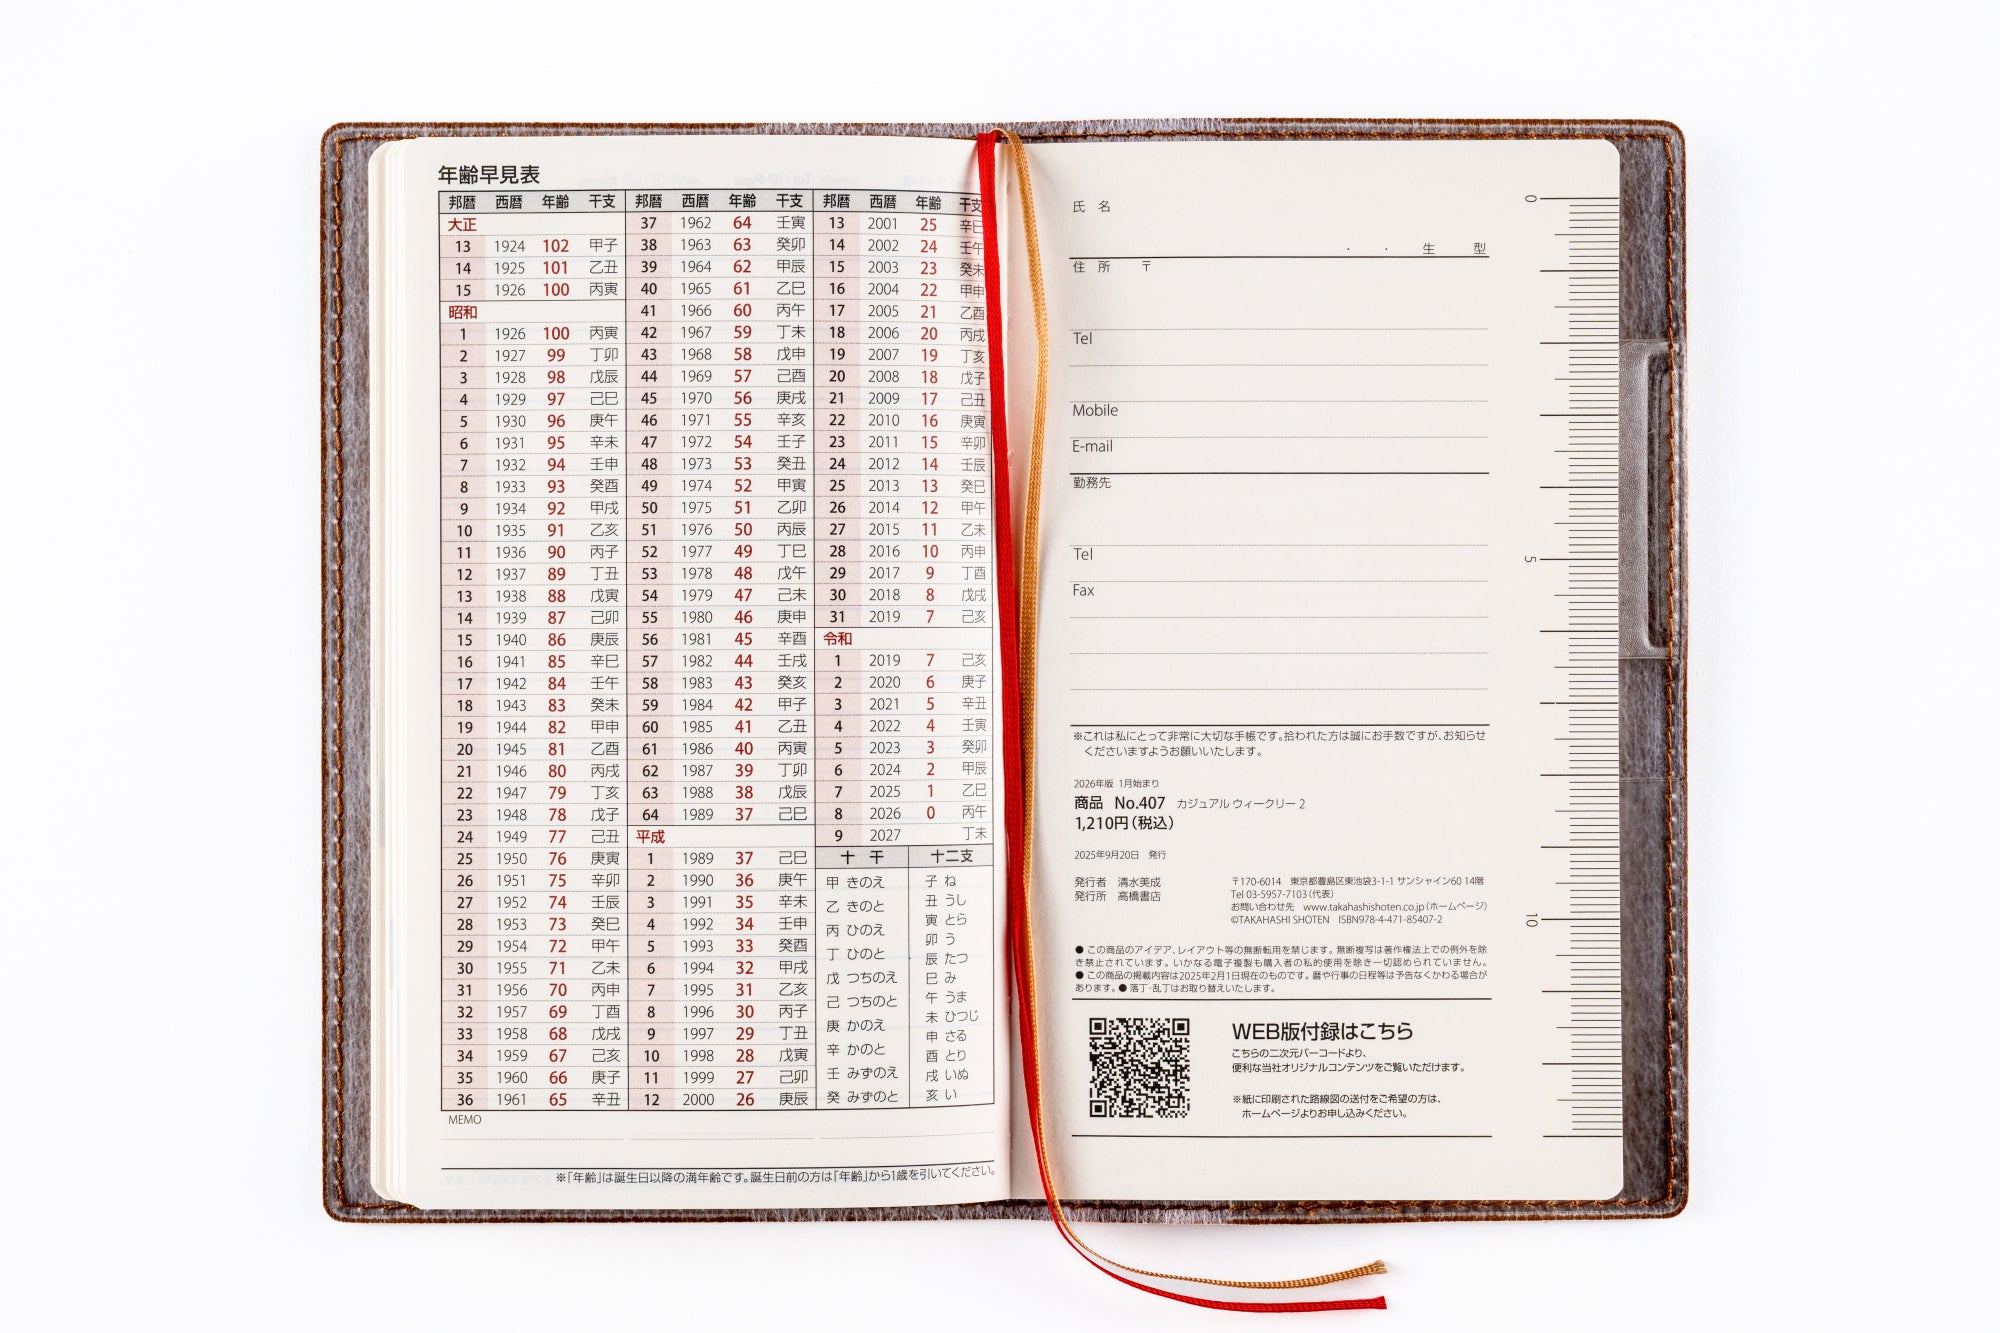 年齢早見表
邦暦 西暦 年齢 干支
大正
13 1924 102 甲子
14 1925 101 乙丑
15 1926 100 丙寅
昭和
1 1926 100 丙寅
2 1927 99 丁卯
3 1928 98 戊辰
4 1929 97 己巳
5 1930 96 庚午
6 1931 95 辛未
7 1932 94 壬申
8 1933 93 癸酉
9 1934 92 甲戌
10 1935 91 乙亥
11 1936 90 丙子
12 1937 89 丁丑
13 1938 88 戊寅
14 1939 87 己卯
15 1940 86 庚辰
16 1941 85 辛巳
17 1942 84 壬午
18 1943 83 癸未
19 1944 82 甲申
20 1945 81 乙酉
21 1946 80 丙戌
22 1947 79 丁亥
23 1948 78 戊子
24 1949 77 己丑
25 1950 76 庚寅
26 1951 75 辛卯
27 1952 74 壬辰
28 1953 73 癸巳
29 1954 72 甲午
30 1955 71 乙未
31 1956 70 丙申
32 1957 69 丁酉
33 1958 68 戊戌
34 1959 67 己亥
35 1960 66 庚子
36 1961 65 辛丑
邦暦 西暦 年齢 干支
37 1962 64 壬寅
38 1963 63 癸卯
39 1964 62 甲辰
40 1965 61 乙巳
41 1966 60 丙午
42 1967 59 丁未
43 1968 58 戊申
44 1969 57 己酉
45 1970 56 庚戌
46 1971 55 辛亥
47 1972 54 壬子
48 1973 53 癸丑
49 1974 52 甲寅
50 1975 51 乙卯
51 1976 50 丙辰
52 1977 49 丁巳
53 1978 48 戊午
54 1979 47 己未
55 1980 46 庚申
56 1981 45 辛酉
57 1982 44 壬戌
58 1983 43 癸亥
59 1984 42 甲子
60 1985 41 乙丑
61 1986 40 丙寅
62 1987 39 丁卯
63 1988 38 戊辰
64 1989 37 己巳
平成
1 1989 37 己巳
2 1990 36 庚午
3 1991 35 辛未
4 1992 34 壬申
5 1993 33 癸酉
6 1994 32 甲戌
7 1995 31 乙亥
8 1996 30 丙子
9 1997 29 丁丑
10 1998 28 戊寅
11 1999 27 己卯
12 2000 26 庚辰
邦暦 西暦 年齢 干支
13 2001 25 辛巳
14 2002 24 壬午
15 2003 23 癸未
16 2004 22 甲申
17 2005 21 乙酉
18 2006 20 丙戌
19 2007 19 丁亥
20 2008 18 戊子
21 2009 17 己丑
22 2010 16 庚寅
23 2011 15 辛卯
24 2012 14 壬辰
25 2013 13 癸巳
26 2014 12 甲午
27 2015 11 乙未
28 2016 10 丙申
29 2017 9 丁酉
30 2018 8 戊戌
31 2019 7 己亥
令和
1 2019 7 己亥
2 2020 6 庚子
3 2021 5 辛丑
4 2022 4 壬寅
5 2023 3 癸卯
6 2024 2 甲辰
7 2025 1 乙巳
8 2026 0 丙午
9 2027 丁未
十干
甲 きのえ
乙 きのと
丙 ひのえ
丁 ひのと
戊 つちのえ
己 つちのと
庚 かのえ
辛 かのと
壬 みずのえ
癸 みずのと
十二支
子 ね
丑 うし
寅 とら
卯 う
辰 たつ
巳 み
午 うま
未 ひつじ
申 さる
酉 とり
戌 いぬ
亥 い
MEMO
※「年齢」は誕生日以降の満年齢です。誕生日前の方は「年齢」から1歳を引いてください。
氏 名
・ ・ 生 型
住 所 〒
Tel
Mobile
E-mail
勤務先
Tel
Fax
※これは私にとって非常に大切な手帳です。拾われた方は誠にお手数ですが、お知らせ
くださいますようお願いいたします。
2026年版 1月始まり
商品 No.407 カジュアル ウィークリー 2
1,210円(税込)
2025年9月20日 発行
発行者 清水美成
発行所 高橋書店
〒170-6014 東京都豊島区東池袋3-1-1 サンシャイン60 14階
Tel 03-5957-7103(代表)
お問い合わせ先 www.takahashishoten.co.jp(ホームページ)
©TAKAHASHI SHOTEN ISBN978-4-471-85407-2
● この商品のアイデア、レイアウト等の無断転用を禁じます。無断複写は著作権法上での例外を除
き禁止されています。いかなる電子複製も購入者の私的使用を除き一切認められていません。
● この商品の掲載内容は2025年2月1日現在のものです。暦や行事の日程等は予告なくかわる場合が
あります。● 落丁・乱丁はお取り替えいたします。
WEB版付録はこちら
こちらの二次元バーコードより、
便利な当社オリジナルコンテンツをご覧いただけます。
※紙に印刷された路線図の送付をご希望の方は、
ホームページよりお申し込みください。
0
5
10